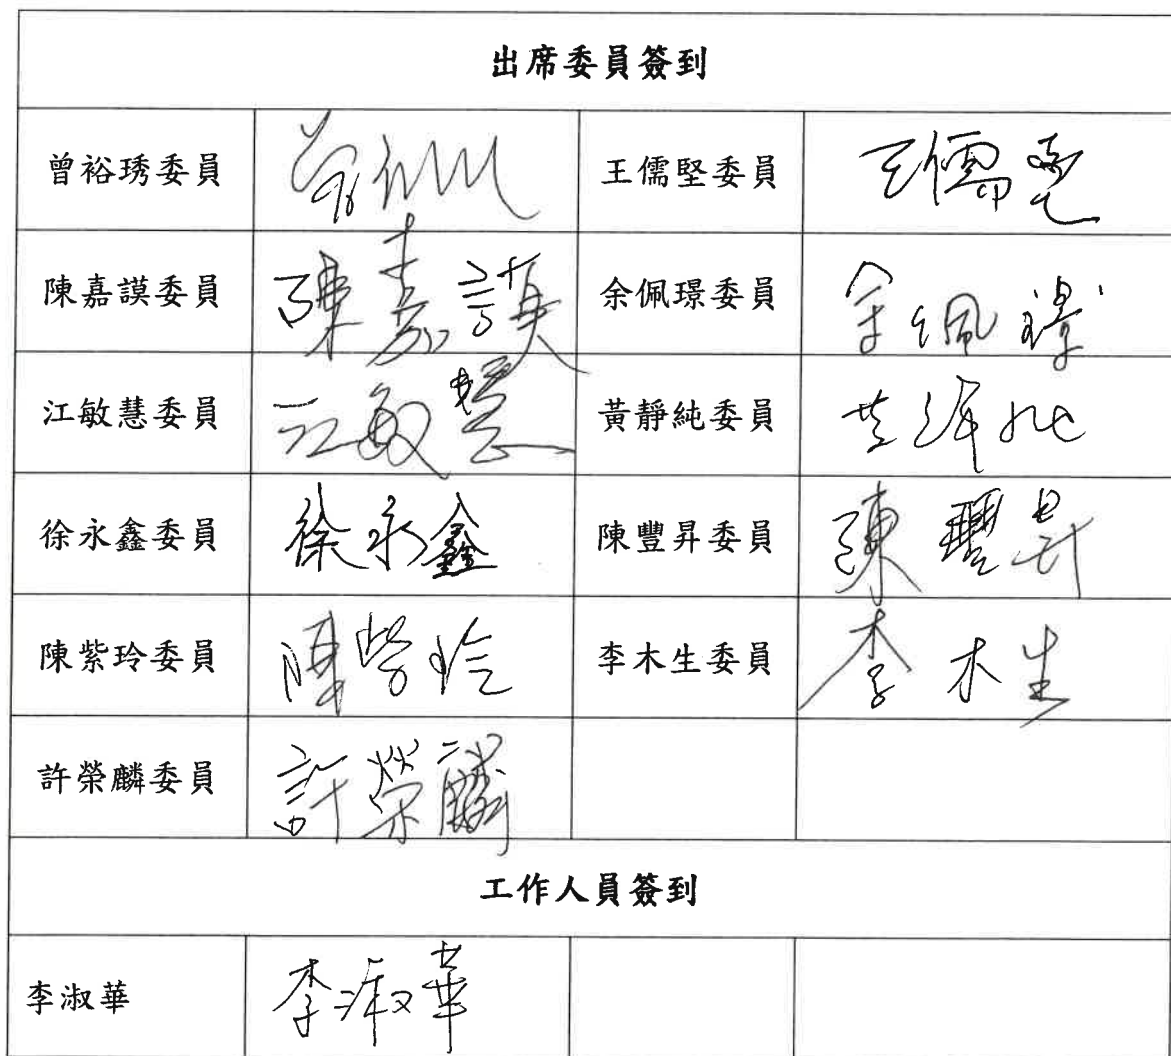 出席委員簽到
曾裕琇委員 王儒堅委員 王儒堅
陳嘉謨委員 陳嘉謨 余佩璟委員 余佩璟
江敏慧委員 江敏慧 黃靜純委員
徐永鑫委員 徐永鑫 陳豐昇委員 陳豐昇
陳紫玲委員 陳紫玲 李木生委員 李木生
許榮麟委員 許榮麟
工作人員簽到
李淑華 李淑華